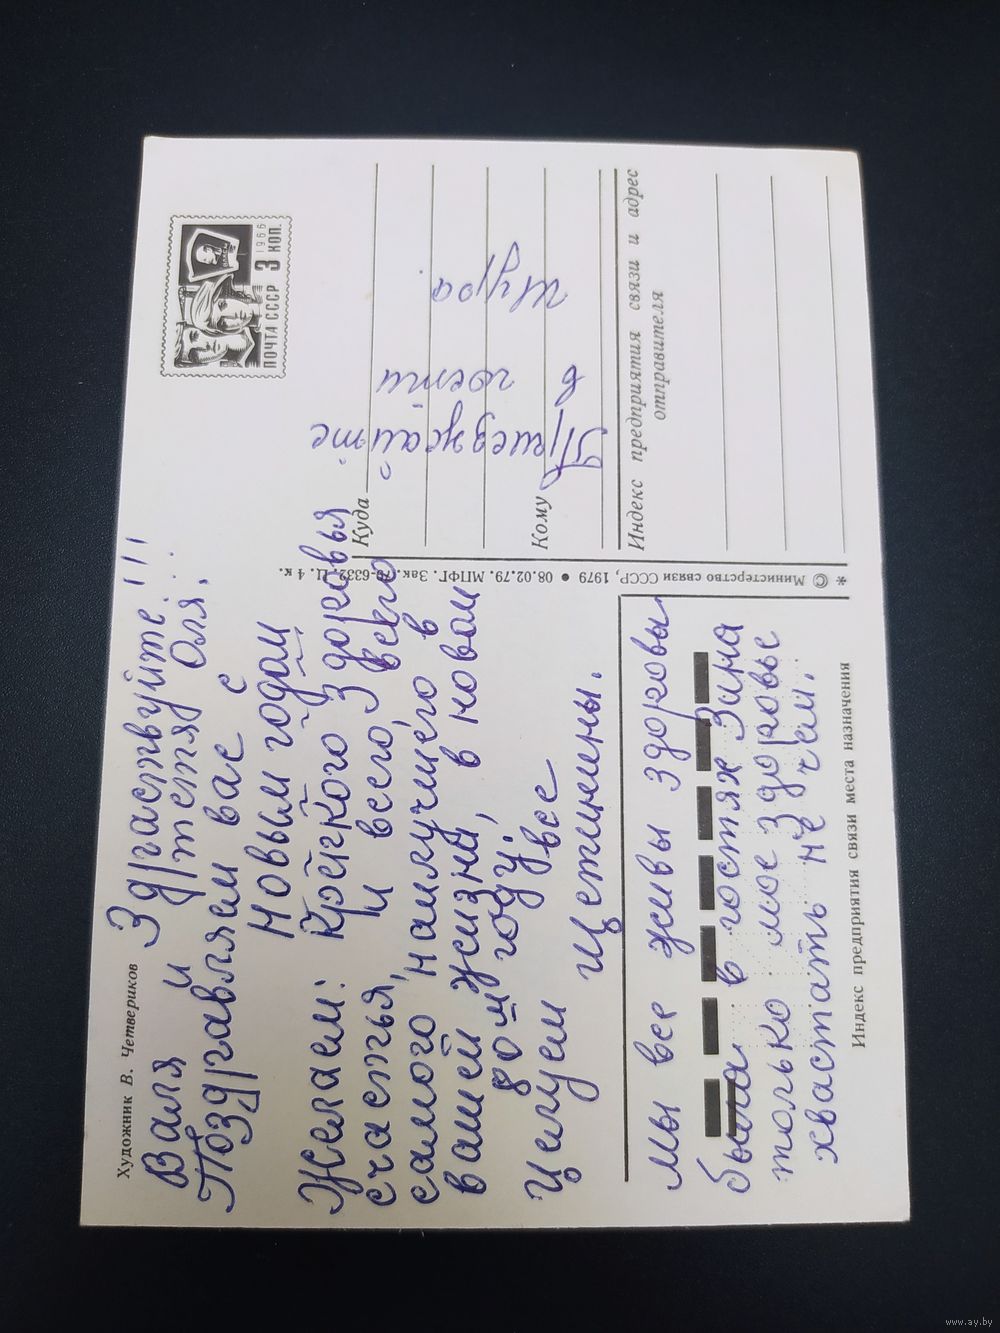 Художник В. Четвериков
Здраствуйте!!!
Валя и тетя Оля!
Поздравляем вас с
Новым годом
Желаем: Крепкого Здоровья
счастья, и всего, всего
самого наилучшего в
вашей жизни, в новом
80м году.
Целуем все
Щетинины.
мы все живы здоровы
была в гостях Зина
только мое здоровье
хвастать не чем.
Индекс предприятия связи места назначения
* © Министерство связи СССР, 1979 ● 08.02.79. МПФГ. Зак. 79-6332. Ц. 4 к.
1966
ПОЧТА СССР 3 КОП.
Куда
Кому
Приезжайте
в гости
Шура
Индекс предприятия связи и адрес
отправителя
www.ay.by